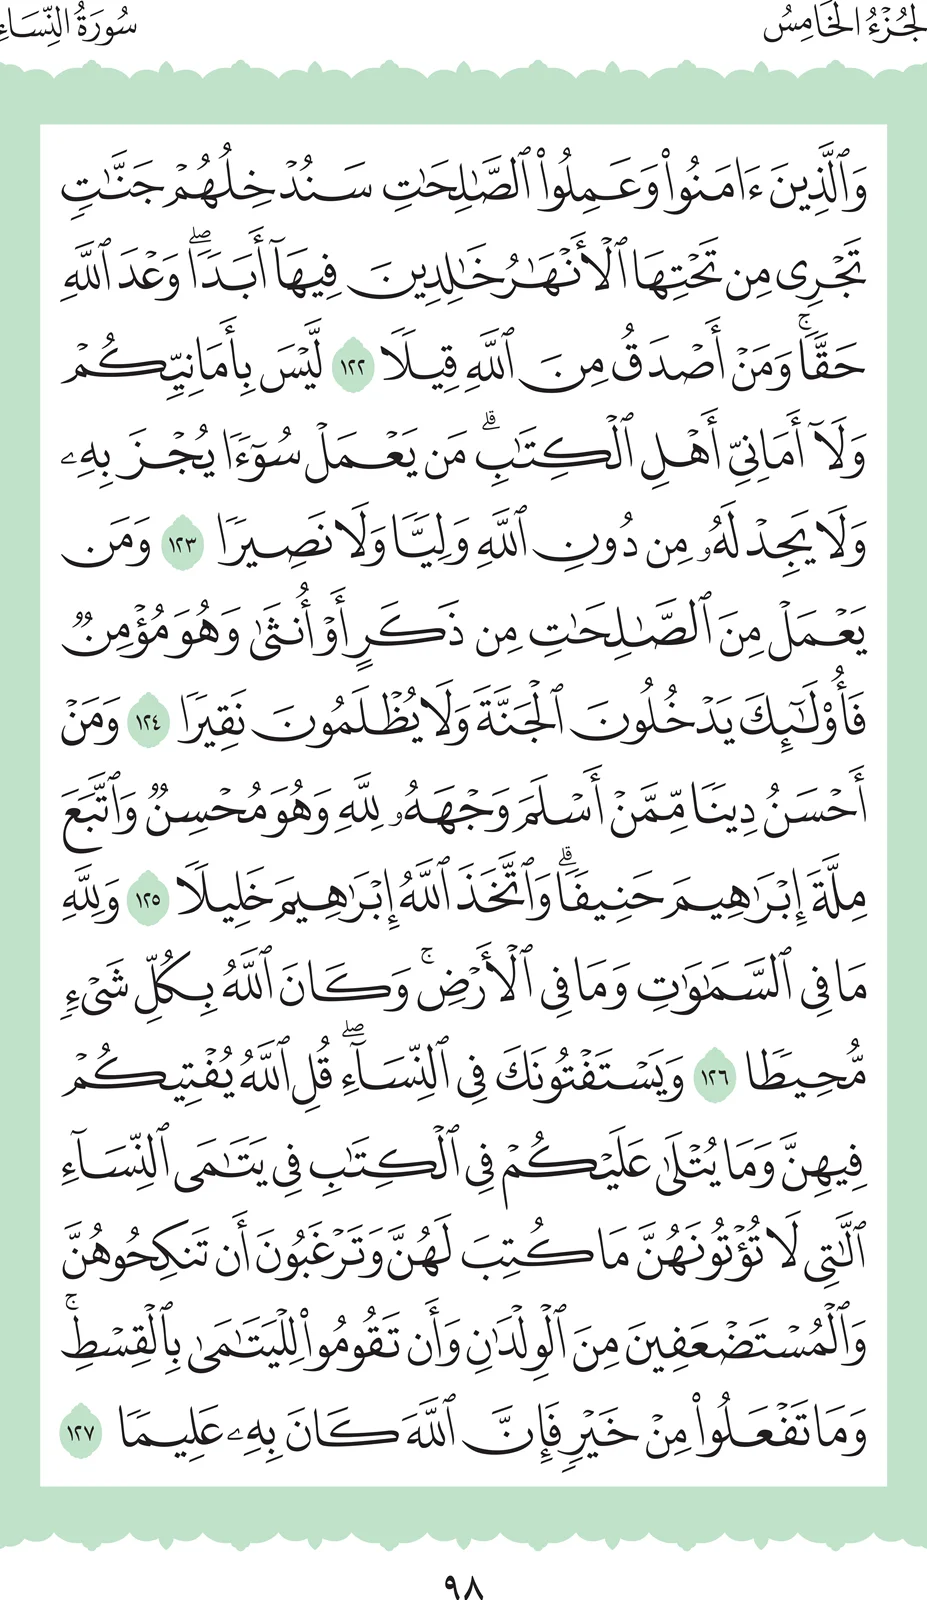 الجُزْءُ الخَامِسُ
سُورَةُ النِّسَاءِ
وَٱلَّذِينَ ءَامَنُوا۟ وَعَمِلُوا۟ ٱلصَّـٰلِحَـٰتِ سَنُدْخِلُهُمْ جَنَّـٰتٍۢ
تَجْرِى مِن تَحْتِهَا ٱلْأَنْهَـٰرُ خَـٰلِدِينَ فِيهَآ أَبَدًۭا ۖ وَعْدَ ٱللَّهِ
حَقًّۭا ۚ وَمَنْ أَصْدَقُ مِنَ ٱللَّهِ قِيلًۭا ١٢٢ لَّيْسَ بِأَمَانِيِّكُمْ
وَلَآ أَمَانِىِّ أَهْلِ ٱلْكِتَـٰبِ ۗ مَن يَعْمَلْ سُوٓءًۭا يُجْزَ بِهِۦ
وَلَا يَجِدْ لَهُۥ مِن دُونِ ٱللَّهِ وَلِيًّۭا وَلَا نَصِيرًۭا ١٢٣ وَمَن
يَعْمَلْ مِنَ ٱلصَّـٰلِحَـٰتِ مِن ذَكَرٍ أَوْ أُنثَىٰ وَهُوَ مُؤْمِنٌۭ
فَأُو۟لَـٰٓئِكَ يَدْخُلُونَ ٱلْجَنَّةَ وَلَا يُظْلَمُونَ نَقِيرًۭا ١٢٤ وَمَنْ
أَحْسَنُ دِينًۭا مِّمَّنْ أَسْلَمَ وَجْهَهُۥ لِلَّهِ وَهُوَ مُحْسِنٌۭ وَٱتَّبَعَ
مِلَّةَ إِبْرَٰهِيمَ حَنِيفًۭا ۗ وَٱتَّخَذَ ٱللَّهُ إِبْرَٰهِيمَ خَلِيلًۭا ١٢٥ وَلِلَّهِ
مَا فِى ٱلسَّمَـٰوَٰتِ وَمَا فِى ٱلْأَرْضِ ۚ وَكَانَ ٱللَّهُ بِكُلِّ شَىْءٍۢ
مُّحِيطًۭا ١٢٦ وَيَسْتَفْتُونَكَ فِى ٱلنِّسَآءِ ۖ قُلِ ٱللَّهُ يُفْتِيكُمْ
فِيهِنَّ وَمَا يُتْلَىٰ عَلَيْكُمْ فِى ٱلْكِتَـٰبِ فِى يَتَـٰمَى ٱلنِّسَآءِ
ٱلَّـٰتِى لَا تُؤْتُونَهُنَّ مَا كُتِبَ لَهُنَّ وَتَرْغَبُونَ أَن تَنكِحُوهُنَّ
وَٱلْمُسْتَضْعَفِينَ مِنَ ٱلْوِلْدَٰنِ وَأَن تَقُومُوا۟ لِلْيَتَـٰمَىٰ بِٱلْقِسْطِ ۚ
وَمَا تَفْعَلُوا۟ مِنْ خَيْرٍۢ فَإِنَّ ٱللَّهَ كَانَ بِهِۦ عَلِيمًۭا ١٢٧
٩٨